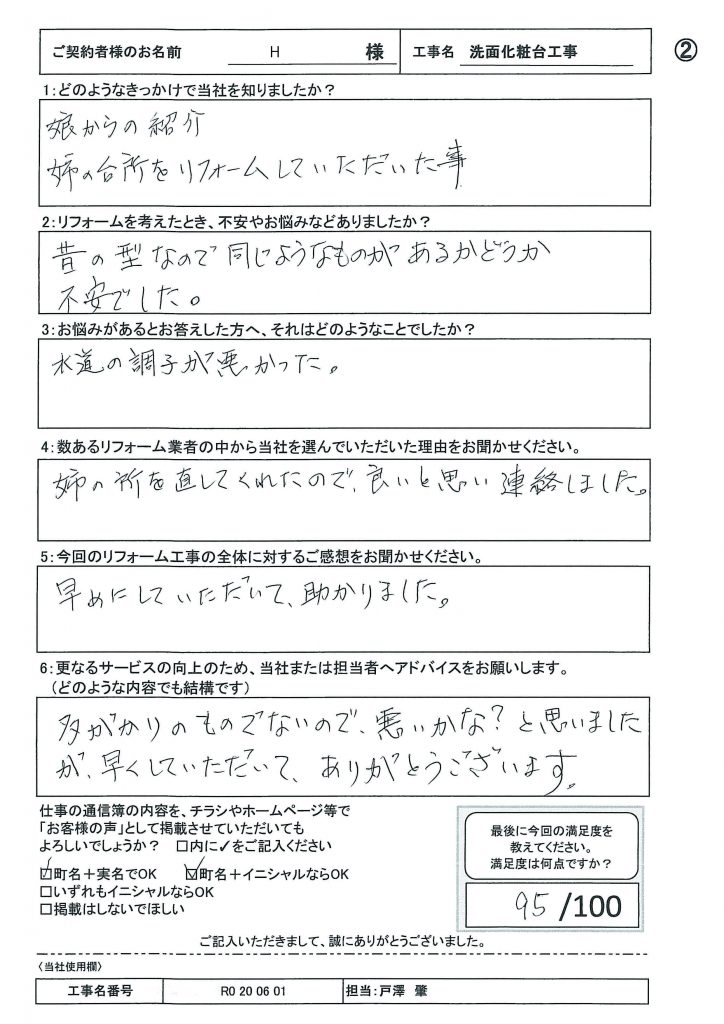 ご契約者様のお名前 H 様 工事名 洗面化粧台工事 ②
1:どのようなきっかけで当社を知りましたか?
娘からの紹介
姉の台所をリフォームしていただいた事
2:リフォームを考えたとき、不安やお悩みなどありましたか?
昔の型なので同じようなものがあるかどうか
不安でした。
3:お悩みがあるとお答えした方へ、それはどのようなことでしたか?
水道の調子が悪かった。
4:数あるリフォーム業者の中から当社を選んでいただいた理由をお聞かせください。
姉の所を直してくれたので、良いと思い連絡しました。
5:今回のリフォーム工事の全体に対するご感想をお聞かせください。
早めにしていただいて、助かりました。
6:更なるサービスの向上のため、当社または担当者へアドバイスをお願いします。
(どのような内容でも結構です)
多がかりのものでないので、悪いかな?と思いました
が、早くしていただいて、ありがとうございます。
仕事の通信簿の内容を、チラシやホームページ等で
「お客様の声」として掲載させていただいても
よろしいでしょうか? □内に✓をご記入ください
☑町名+実名でOK ☑町名+イニシャルならOK
□いずれもイニシャルならOK
□掲載はしないでほしい
最後に今回の満足度を
教えてください。
満足度は何点ですか?
95/100
ご記入いただきまして、誠にありがとうございました。
〈当社使用欄〉
工事名番号 R0 20 06 01 担当:戸澤 肇